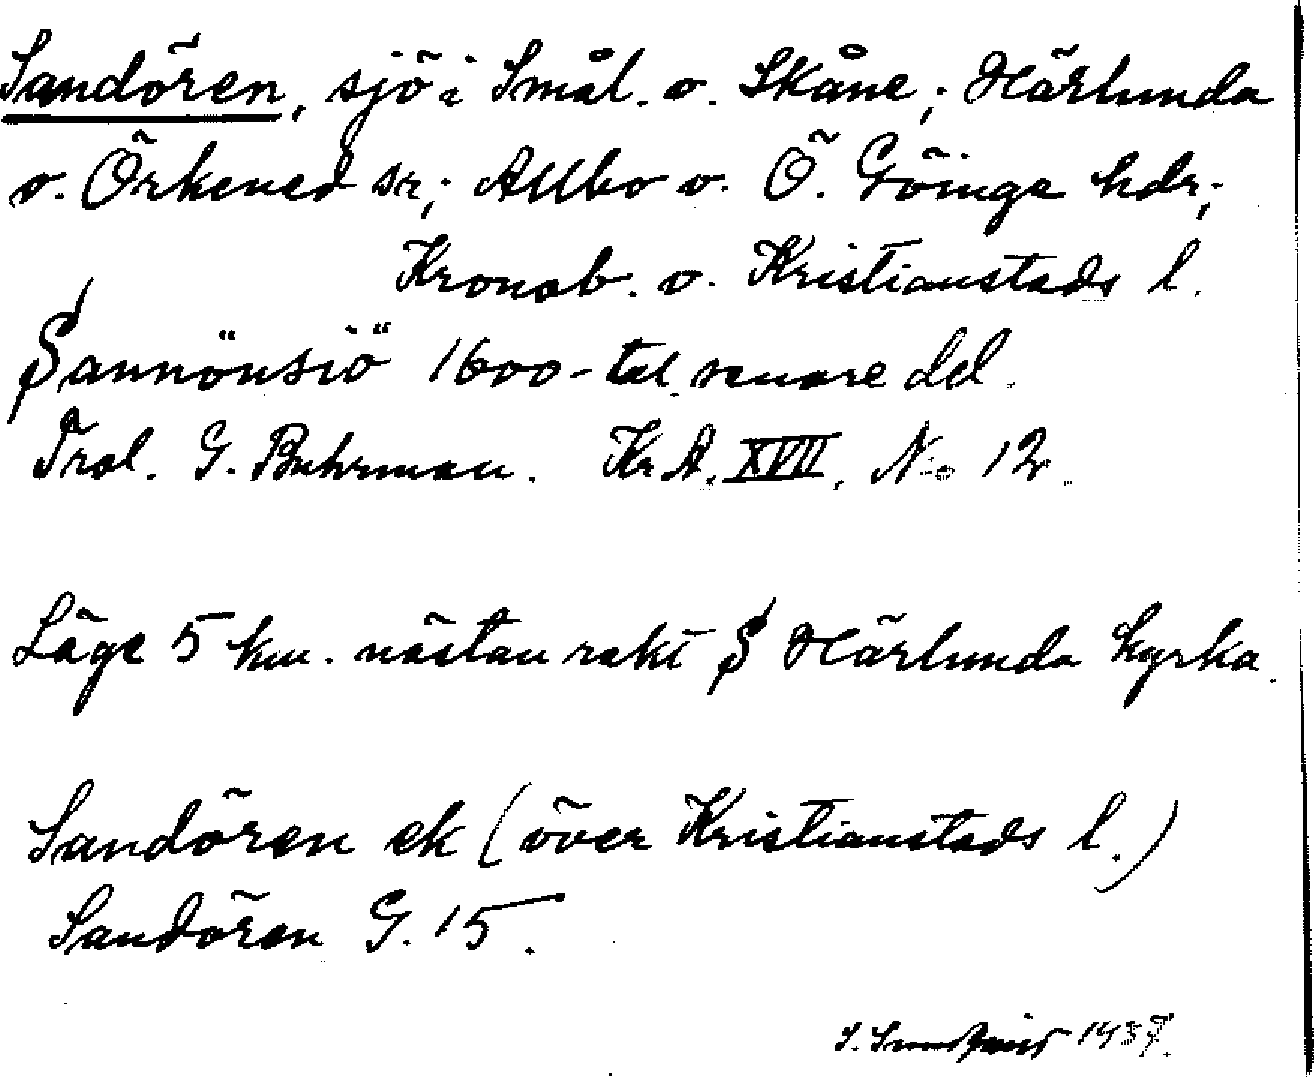 Sandören, sjö i Smål. o. Skåne; Härlunda
o. Örkened sr; Allbo o. Ö. Göinge hdr;
Kronob. o. Kristianstads l.
Sannönsiö 1600-tal senare del.
Trol. G. Buhrman. Kr. A. XVII, No 12.
Läge 5 km. nästan rakt S Härlunda kyrka.
Sandören ek (över Kristianstads l.)
Sandören G. 15.
1937.